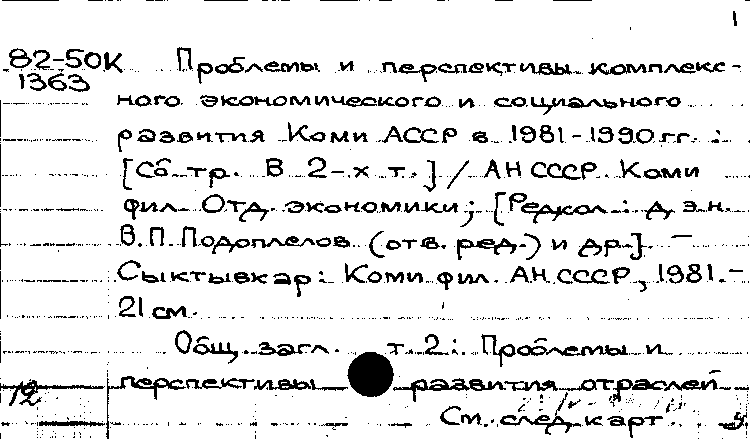 1
82-50К Проблемы и перспективы комплекс-
1363
ного экономического и социального
развития Коми АССР в 1981-1990 гг. :
[Сб. тр. В 2-х т.] / АН СССР. Коми
фил. Отд. экономики; [Редкол.: д.э.н.
В.П. Подоплелов (отв. ред.) и др.]. —
Сыктывкар: Коми фил. АН СССР, 1981. -
21 см.
Общ. загл. т. 2: Проблемы и
перспективы развития отраслей
12
См. след. карт.